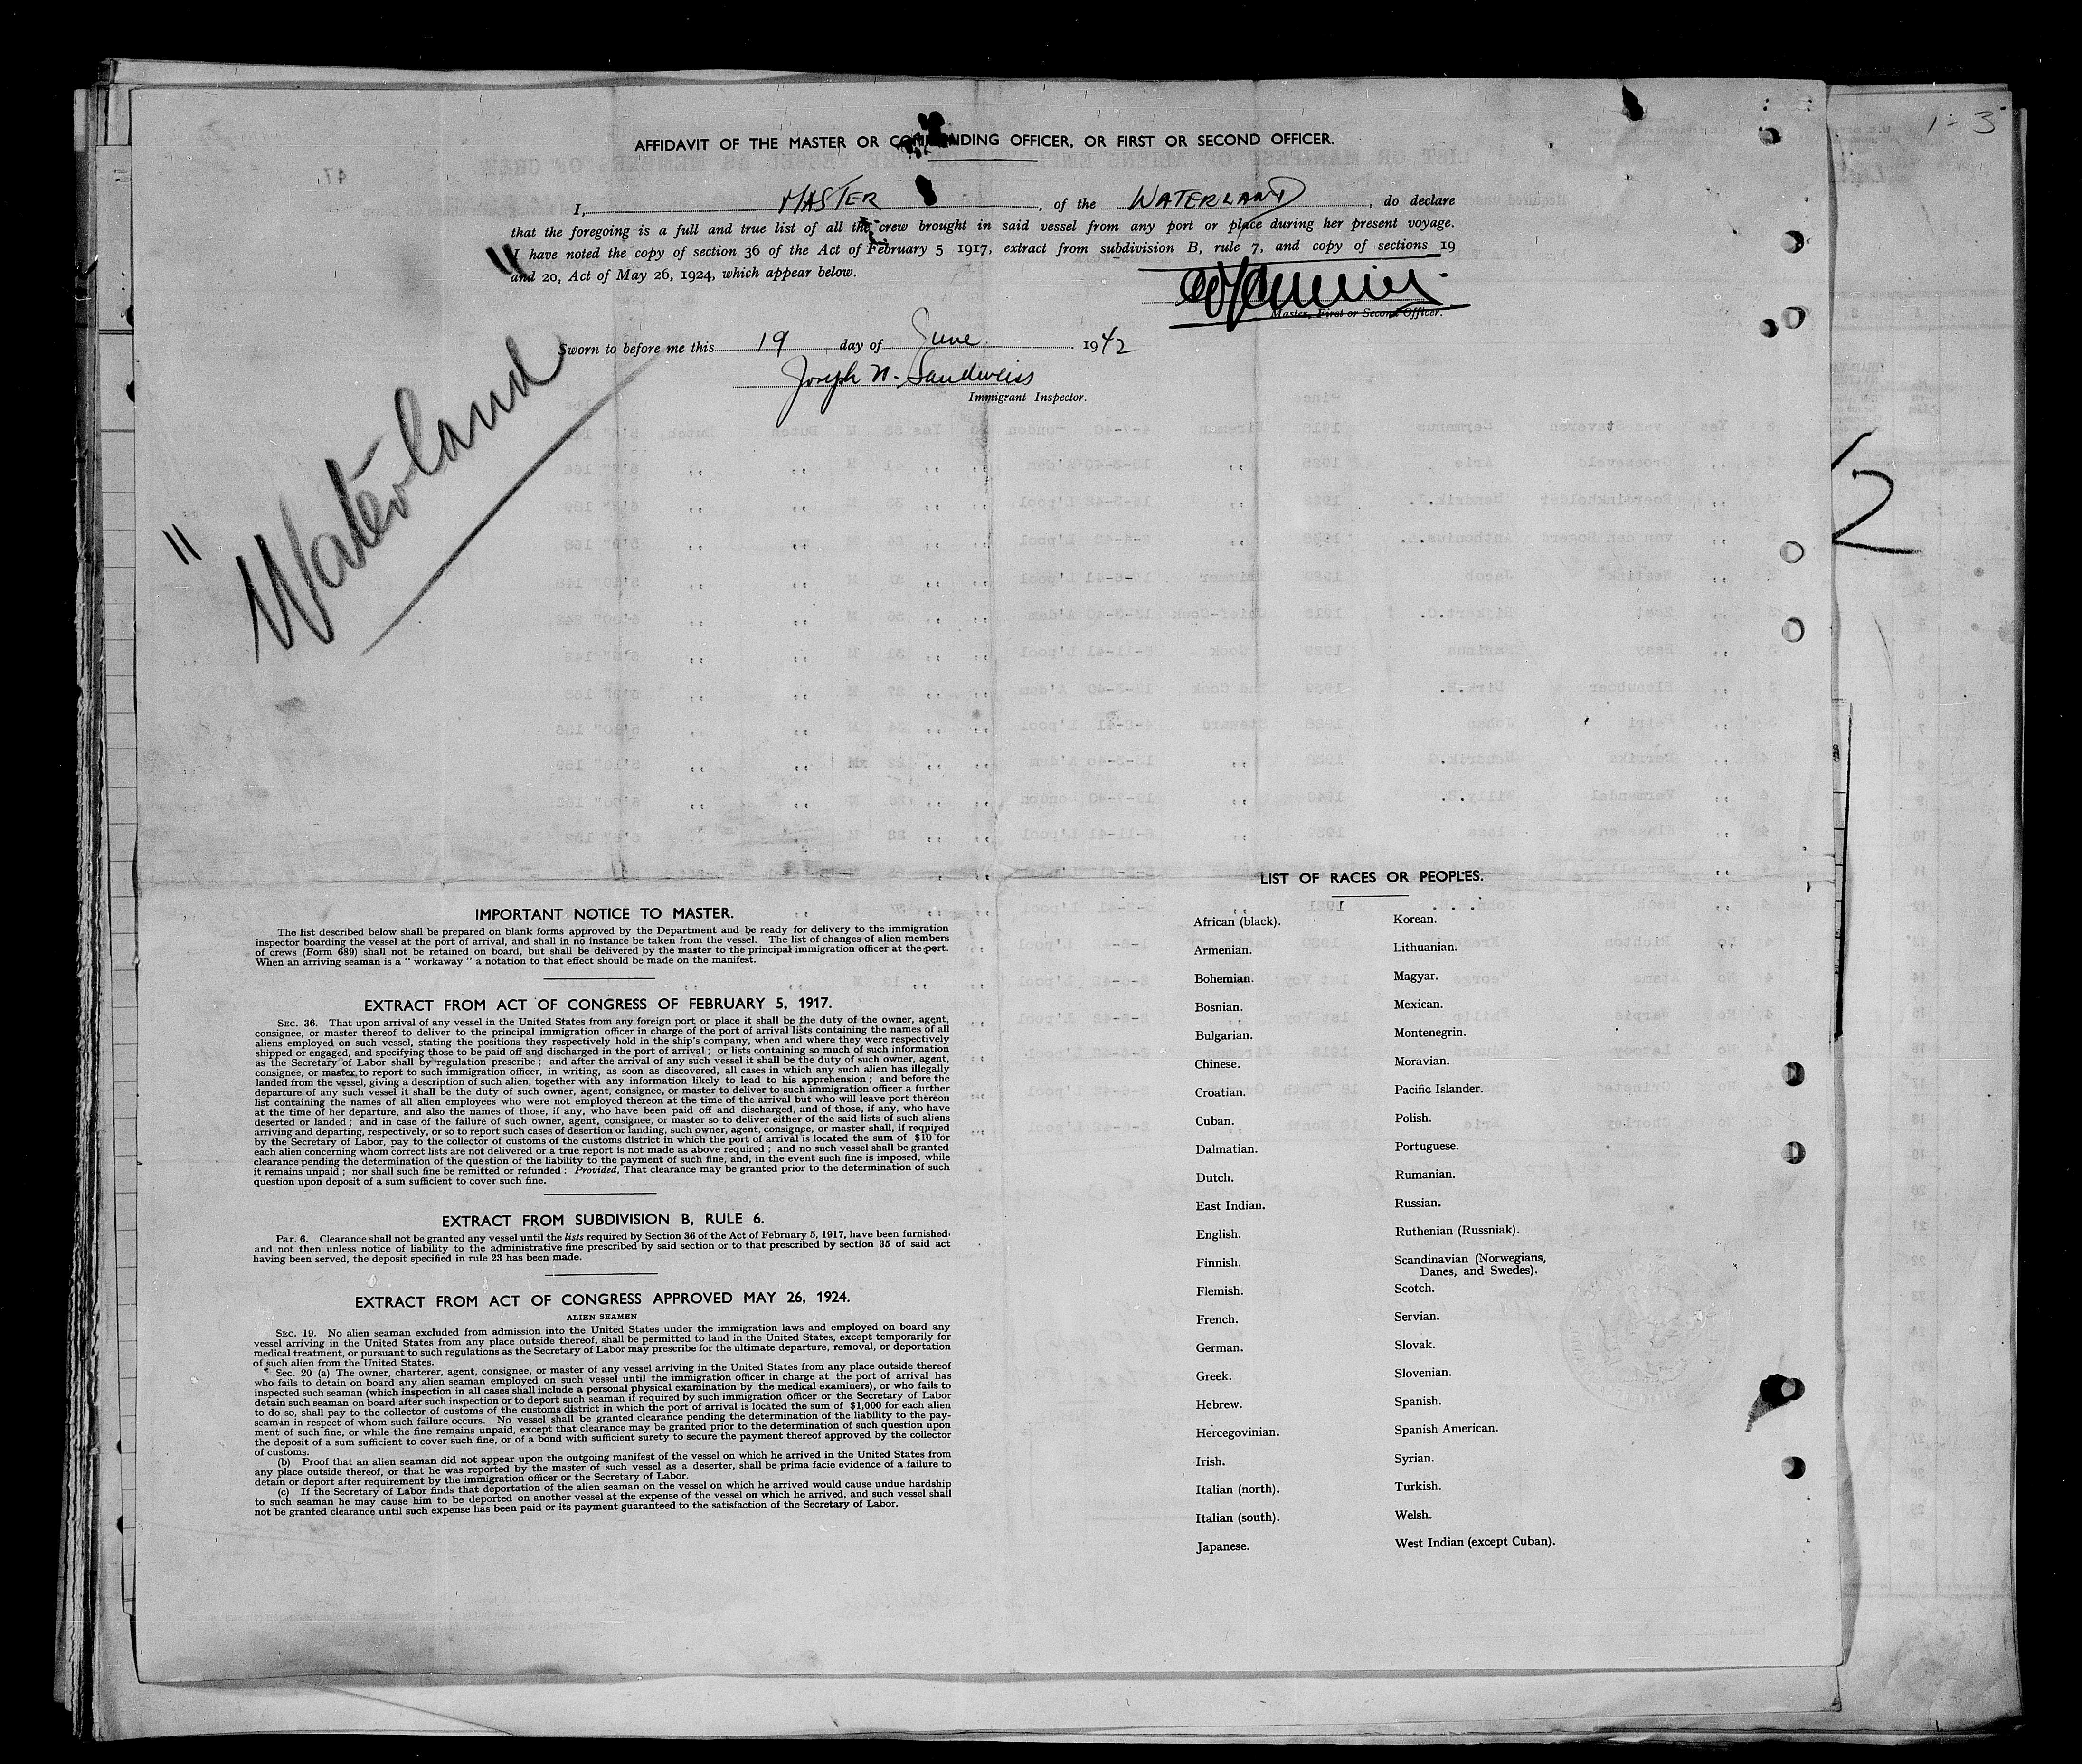 1-3
AFFIDAVIT OF THE MASTER OR COMMANDING OFFICER, OR FIRST OR SECOND OFFICER.
I, MASTER, of the WATERLAND, do declare
that the foregoing is a full and true list of all the crew brought in said vessel from any port or place during her present voyage.
I have noted the copy of section 36 of the Act of February 5 1917, extract from subdivision B, rule 7, and copy of sections 19
and 20, Act of May 26, 1924, which appear below.
Master, First or Second Officer.
Sworn to before me this 19 day of June 1942
Joseph N. Sandweiss
Immigrant Inspector.
" Waterland "
2
IMPORTANT NOTICE TO MASTER.
The list described below shall be prepared on blank forms approved by the Department and be ready for delivery to the immigration
inspector boarding the vessel at the port of arrival, and shall in no instance be taken from the vessel. The list of changes of alien members
of crews (Form 689) shall not be retained on board, but shall be delivered by the master to the principal immigration officer at the port.
When an arriving seaman is a " workaway " a notation to that effect should be made on the manifest.
EXTRACT FROM ACT OF CONGRESS OF FEBRUARY 5, 1917.
SEC. 36. That upon arrival of any vessel in the United States from any foreign port or place it shall be the duty of the owner, agent,
consignee, or master thereof to deliver to the principal immigration officer in charge of the port of arrival lists containing the names of all
aliens employed on such vessel, stating the positions they respectively hold in the ship's company, when and where they were respectively
shipped or engaged, and specifying those to be paid off and discharged in the port of arrival ; or lists containing so much of such information
as the Secretary of Labor shall by regulation prescribe ; and after the arrival of any such vessel it shall be the duty of such owner, agent,
consignee, or master to report to such immigration officer, in writing, as soon as discovered, all cases in which any such alien has illegally
landed from the vessel, giving a description of such alien, together with any information likely to lead to his apprehension ; and before the
departure of any such vessel it shall be the duty of such owner, agent, consignee, or master to deliver to such immigration officer a further
list containing the names of all alien employees who were not employed thereon at the time of the arrival but who will leave port thereon
at the time of her departure, and also the names of those, if any, who have been paid off and discharged, and of those, if any, who have
deserted or landed ; and in case of the failure of such owner, agent, consignee, or master so to deliver either of the said lists of such aliens
arriving and departing, respectively, or so to report such cases of desertion or landing, such owner, agent, consignee, or master shall, if required
by the Secretary of Labor, pay to the collector of customs of the customs district in which the port of arrival is located the sum of $10 for
each alien concerning whom correct lists are not delivered or a true report is not made as above required ; and no such vessel shall be granted
clearance pending the determination of the question of the liability to the payment of such fine, and, in the event such fine is imposed, while
it remains unpaid ; nor shall such fine be remitted or refunded : Provided, That clearance may be granted prior to the determination of such
question upon deposit of a sum sufficient to cover such fine.
EXTRACT FROM SUBDIVISION B, RULE 6.
PAR. 6. Clearance shall not be granted any vessel until the lists required by Section 36 of the Act of February 5, 1917, have been furnished,
and not then unless notice of liability to the administrative fine prescribed by said section or to that prescribed by section 35 of said act
having been served, the deposit specified in rule 23 has been made.
EXTRACT FROM ACT OF CONGRESS APPROVED MAY 26, 1924.
ALIEN SEAMEN
SEC. 19. No alien seaman excluded from admission into the United States under the immigration laws and employed on board any
vessel arriving in the United States from any place outside thereof, shall be permitted to land in the United States, except temporarily for
medical treatment, or pursuant to such regulations as the Secretary of Labor may prescribe for the ultimate departure, removal, or deportation
of such alien from the United States.
Sec. 20 (a) The owner, charterer, agent, consignee, or master of any vessel arriving in the United States from any place outside thereof
who fails to detain on board any alien seaman employed on such vessel until the immigration officer in charge at the port of arrival has
inspected such seaman (which inspection in all cases shall include a personal physical examination by the medical examiners), or who fails to
detain such seaman on board after such inspection or to deport such seaman if required by such immigration officer or the Secretary of Labor
to do so, shall pay to the collector of customs of the customs district in which the port of arrival is located the sum of $1,000 for each alien
seaman in respect of whom such failure occurs. No vessel shall be granted clearance pending the determination of the liability to the pay-
ment of such fine, or while the fine remains unpaid, except that clearance may be granted prior to the determination of such question upon
the deposit of a sum sufficient to cover such fine, or of a bond with sufficient surety to secure the payment thereof approved by the collector
of customs.
(b) Proof that an alien seaman did not appear upon the outgoing manifest of the vessel on which he arrived in the United States from
any place outside thereof, or that he was reported by the master of such vessel as a deserter, shall be prima facie evidence of a failure to
detain or deport after requirement by the immigration officer or the Secretary of Labor.
(c) If the Secretary of Labor finds that deportation of the alien seaman on the vessel on which he arrived would cause undue hardship
to such seaman he may cause him to be deported on another vessel at the expense of the vessel on which he arrived, and such vessel shall
not be granted clearance until such expense has been paid or its payment guaranteed to the satisfaction of the Secretary of Labor.
LIST OF RACES OR PEOPLES.
African (black).
Armenian.
Bohemian.
Bosnian.
Bulgarian.
Chinese.
Croatian.
Cuban.
Dalmatian.
Dutch.
East Indian.
English.
Finnish.
Flemish.
French.
German.
Greek.
Hebrew.
Hercegovinian.
Irish.
Italian (north).
Italian (south).
Japanese.
Korean.
Lithuanian.
Magyar.
Mexican.
Montenegrin.
Moravian.
Pacific Islander.
Polish.
Portuguese.
Rumanian.
Russian.
Ruthenian (Russniak).
Scandinavian (Norwegians,
Danes, and Swedes).
Scotch.
Servian.
Slovak.
Slovenian.
Spanish.
Spanish American.
Syrian.
Turkish.
Welsh.
West Indian (except Cuban).